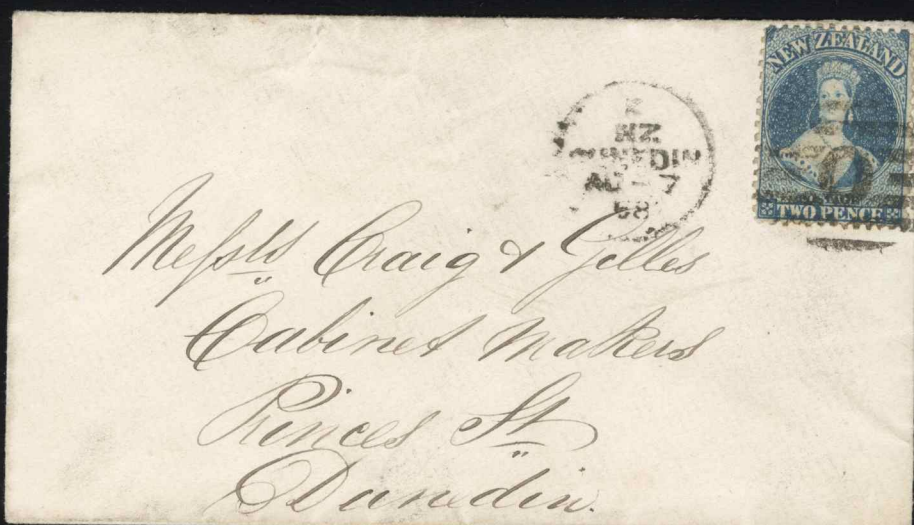 NEW ZEALAND
POSTAGE
TWO PENCE
NZ
DUNEDIN
AU 7
68
O
Messrs Craig & Gillies
Cabinet Makers
Princes St
Dunedin.